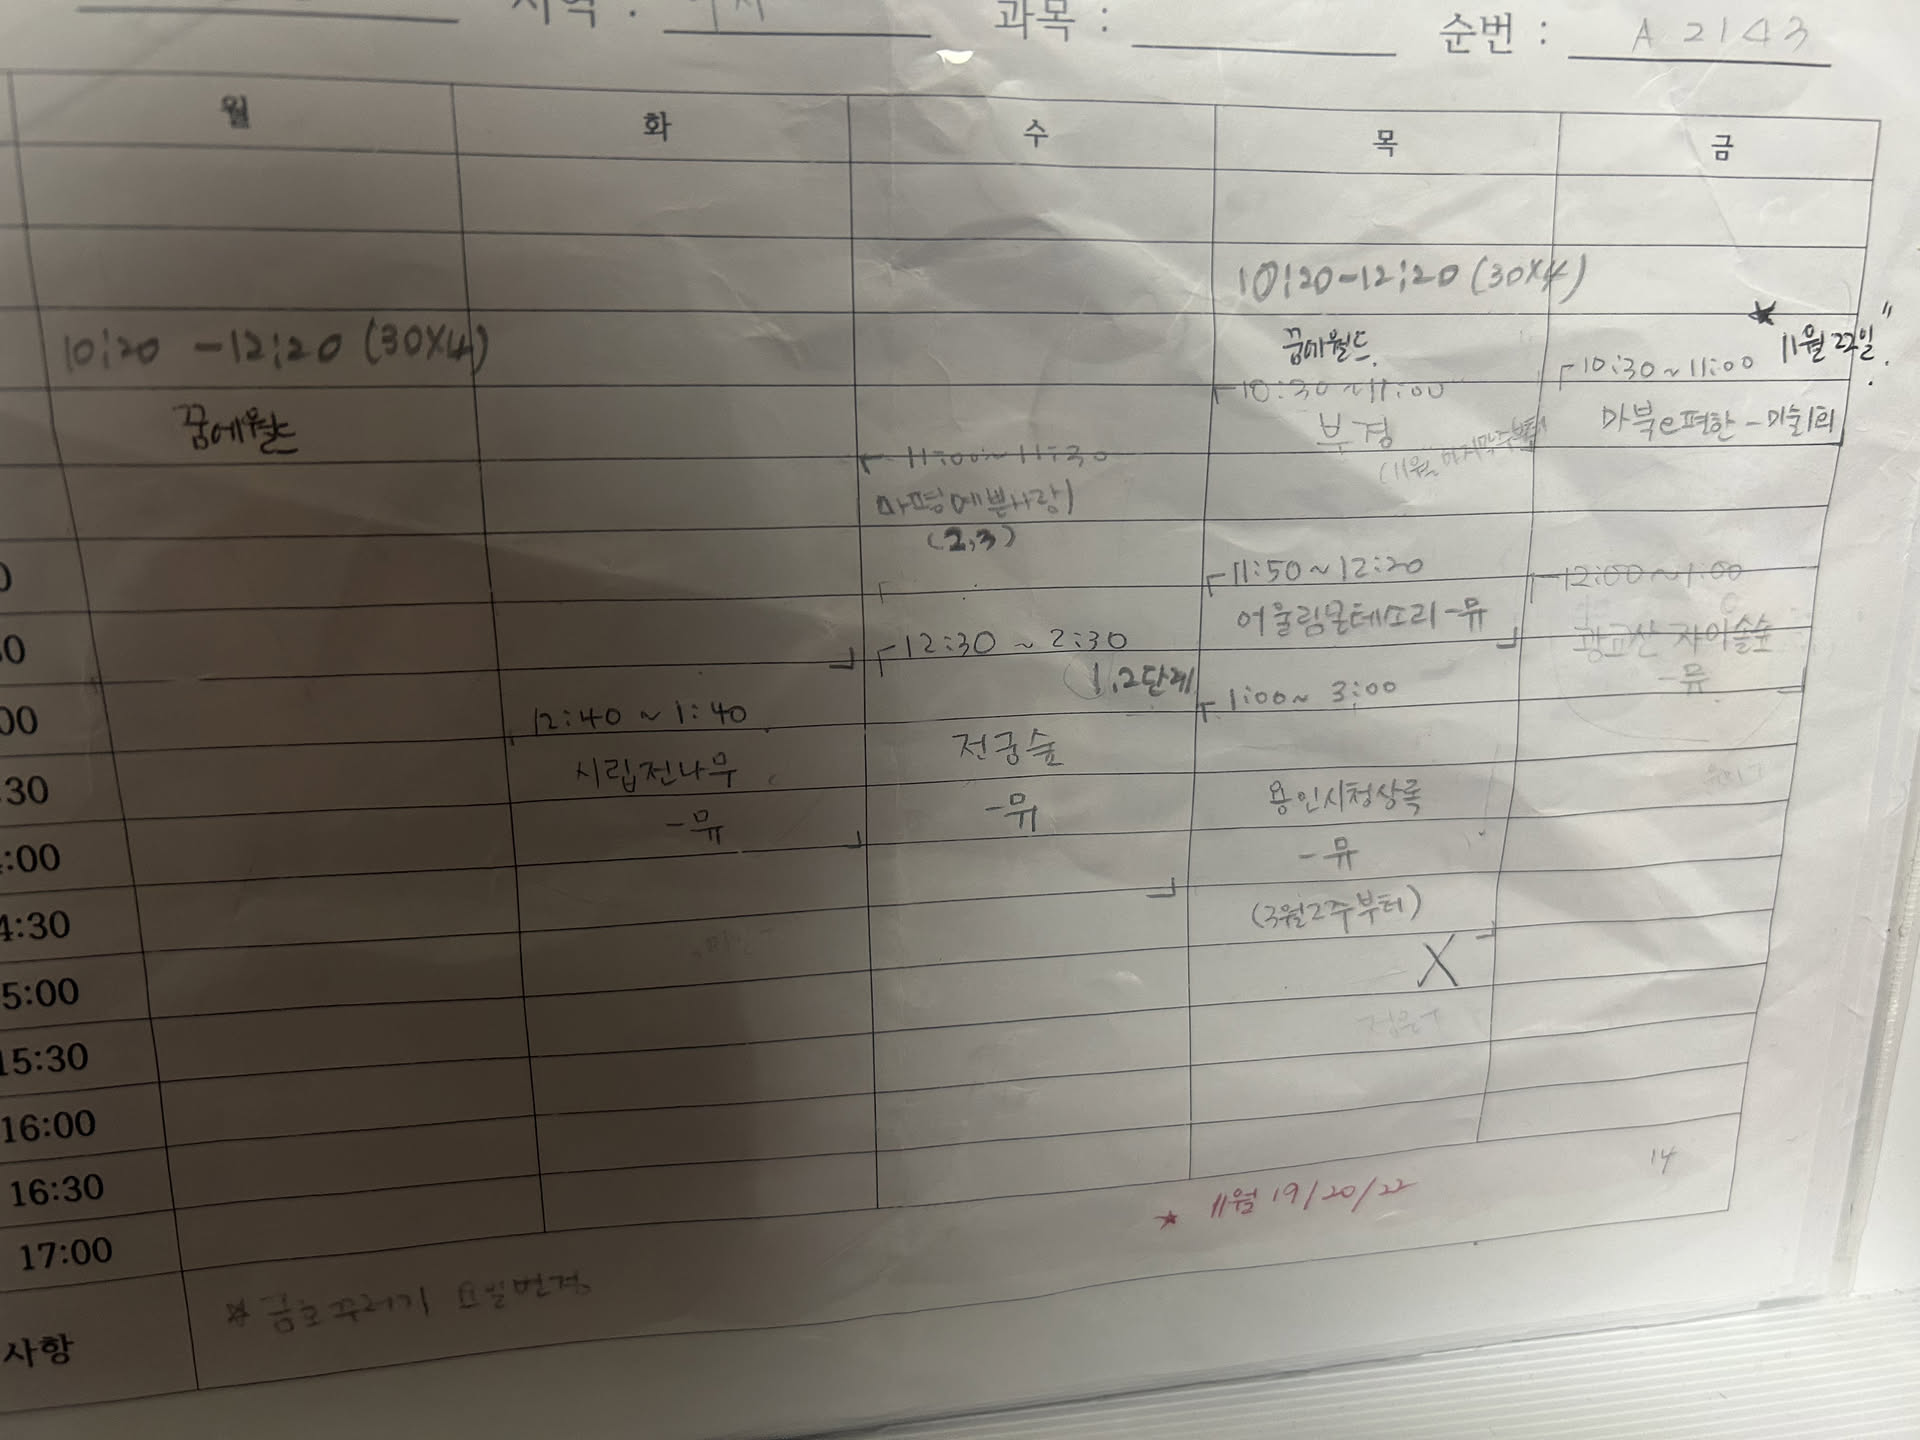 지역 :
과목 :
순번 : A 2143
월 화 수 목 금
10:20-12:20 (30X4)
꿈에월드
11월 22일
10:20 -12:20 (30X4)
꿈에월드
10:30~11:00
부경
(11월 마지막주부터)
10:30~11:00
마북e편한-미술1회
11:00~11:30
마평예쁜사랑1
(2,3)
11:50~12:20
어울림몬테소리-뮤
12:00~1:00
광교산 자이숲숲
-뮤
12:30 ~ 2:30
1,2단계
전궁숲
-뮤
12:40 ~ 1:40
시립전나무
-뮤
1:00~ 3:00
용인시청상록
-뮤
(3월2주부터)
X
:30
:00
4:30
5:00
15:30
16:00
16:30
17:00
14
11월 19/20/22
사항
금호꾸러기 요일변경